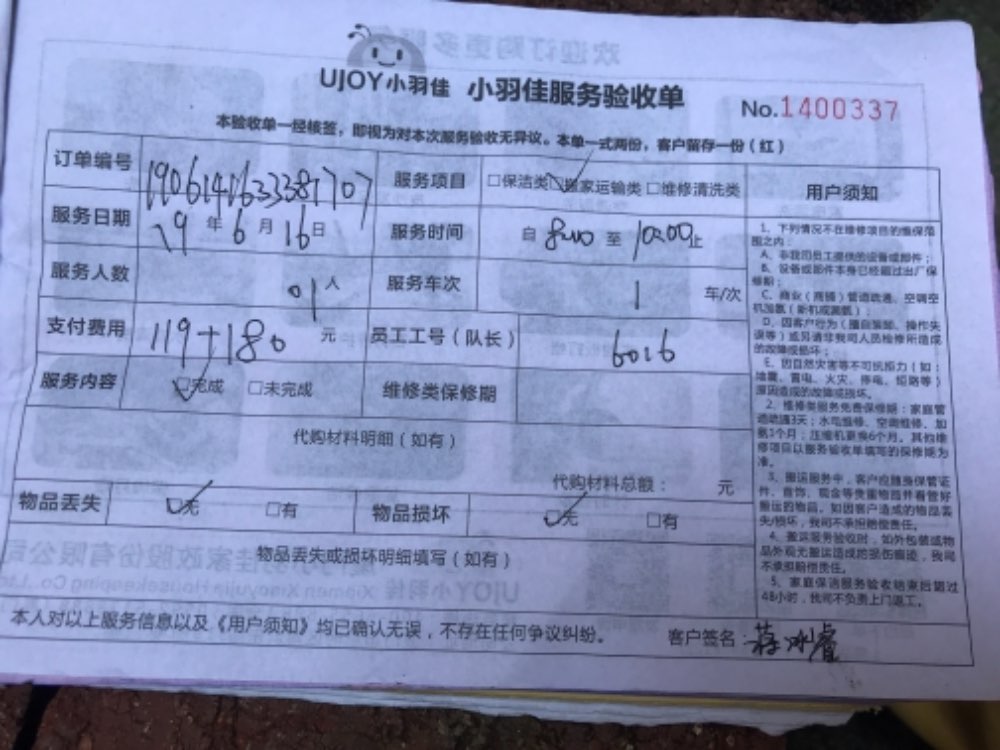 UJOY小羽佳 小羽佳服务验收单 No.1400337
本验收单一经核签，即视为对本次服务验收无异议。本单一式两份，客户留存一份（红）
订单编号 19061416333381707 服务项目 □保洁类 □搬家运输类 □维修清洗类 用户须知
服务日期 19年6月16日 服务时间 自8:00至10:00止
服务人数 01人 服务车次 1 车/次
支付费用 119+180 元 员工工号（队长） 6016
服务内容 □完成 □未完成 维修类保修期
代购材料明细（如有）
代购材料总额： 元
物品丢失 □无 □有 物品损坏 □无 □有
物品丢失或损坏明细填写（如有）
1、下列情况不在维修项目的维保范
围之内：
A、非我司员工提供的设备或部件；
B、设备或部件本身已经超过出厂保
修期；
C、商业（商铺）管道疏通、空调空
机加氨（新机或漏氨）；
D、因客户行为（擅自装卸、操作失
误等）或另请非我司人员检修所造成
的故障或损坏；
E、因自然灾害等不可抗拒力（如：
地震、雷电、火灾、停电、短路等）
原因造成的故障或损坏。
2、维修类服务免费保修期：家庭管
道疏通3天；水电维修、空调维修、加
氨1个月；压缩机更换6个月。其他维
修项目以服务验收单填写的保修期为
准。
3、搬运服务中，客户应随身保管证
件、首饰、现金等贵重物品并看管好
搬运的物品。如因客户造成的物品丢
失/损坏，我司不承担赔偿责任。
4、搬运服务验收时，如外包装或物
品外观无搬运造成的损伤痕迹，我司
不承担赔偿责任。
5、家庭保洁服务验收结束后超过
48小时，我司不负责上门返工。
本人对以上服务信息以及《用户须知》均已确认无误，不存在任何争议纠纷。 客户签名：蒋冰睿